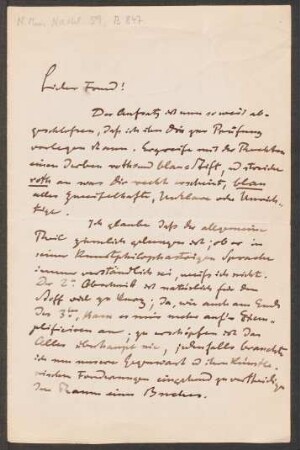 Lieber Freund!
Der Aufsatz ist nun so weit ab-
geschlossen, daß ich ihn Dir zur Prüfung
vorlegen kann. Ergreife mit der Rechten
einen derben roth und blau Stift, u streiche
roth an was Dir recht erscheint, blau
alles Zweifelhafte, Unklare oder Unrich-
tige.
Ich glaube daß der allgemeine
Theil ziemlich gelungen ist, ob er in
seiner Kunstphilosophastrigen Sprache
immer verständlich sei, weiß ich nicht.
Der 2te Abschnitt ist natürlich für den
Stoff viel zu kurz; da, wie auch am Ende
des 3ten, kam es mir mehr auf's Exem-
plificiren an, zu erschöpfen ist das
Alles überhaupt nie, jedenfalls brauchte
ich um unsere Gegenwart u ihre künstle-
rischen Forderungen eingehend zu vertheidigen
den Raum eines Buches.